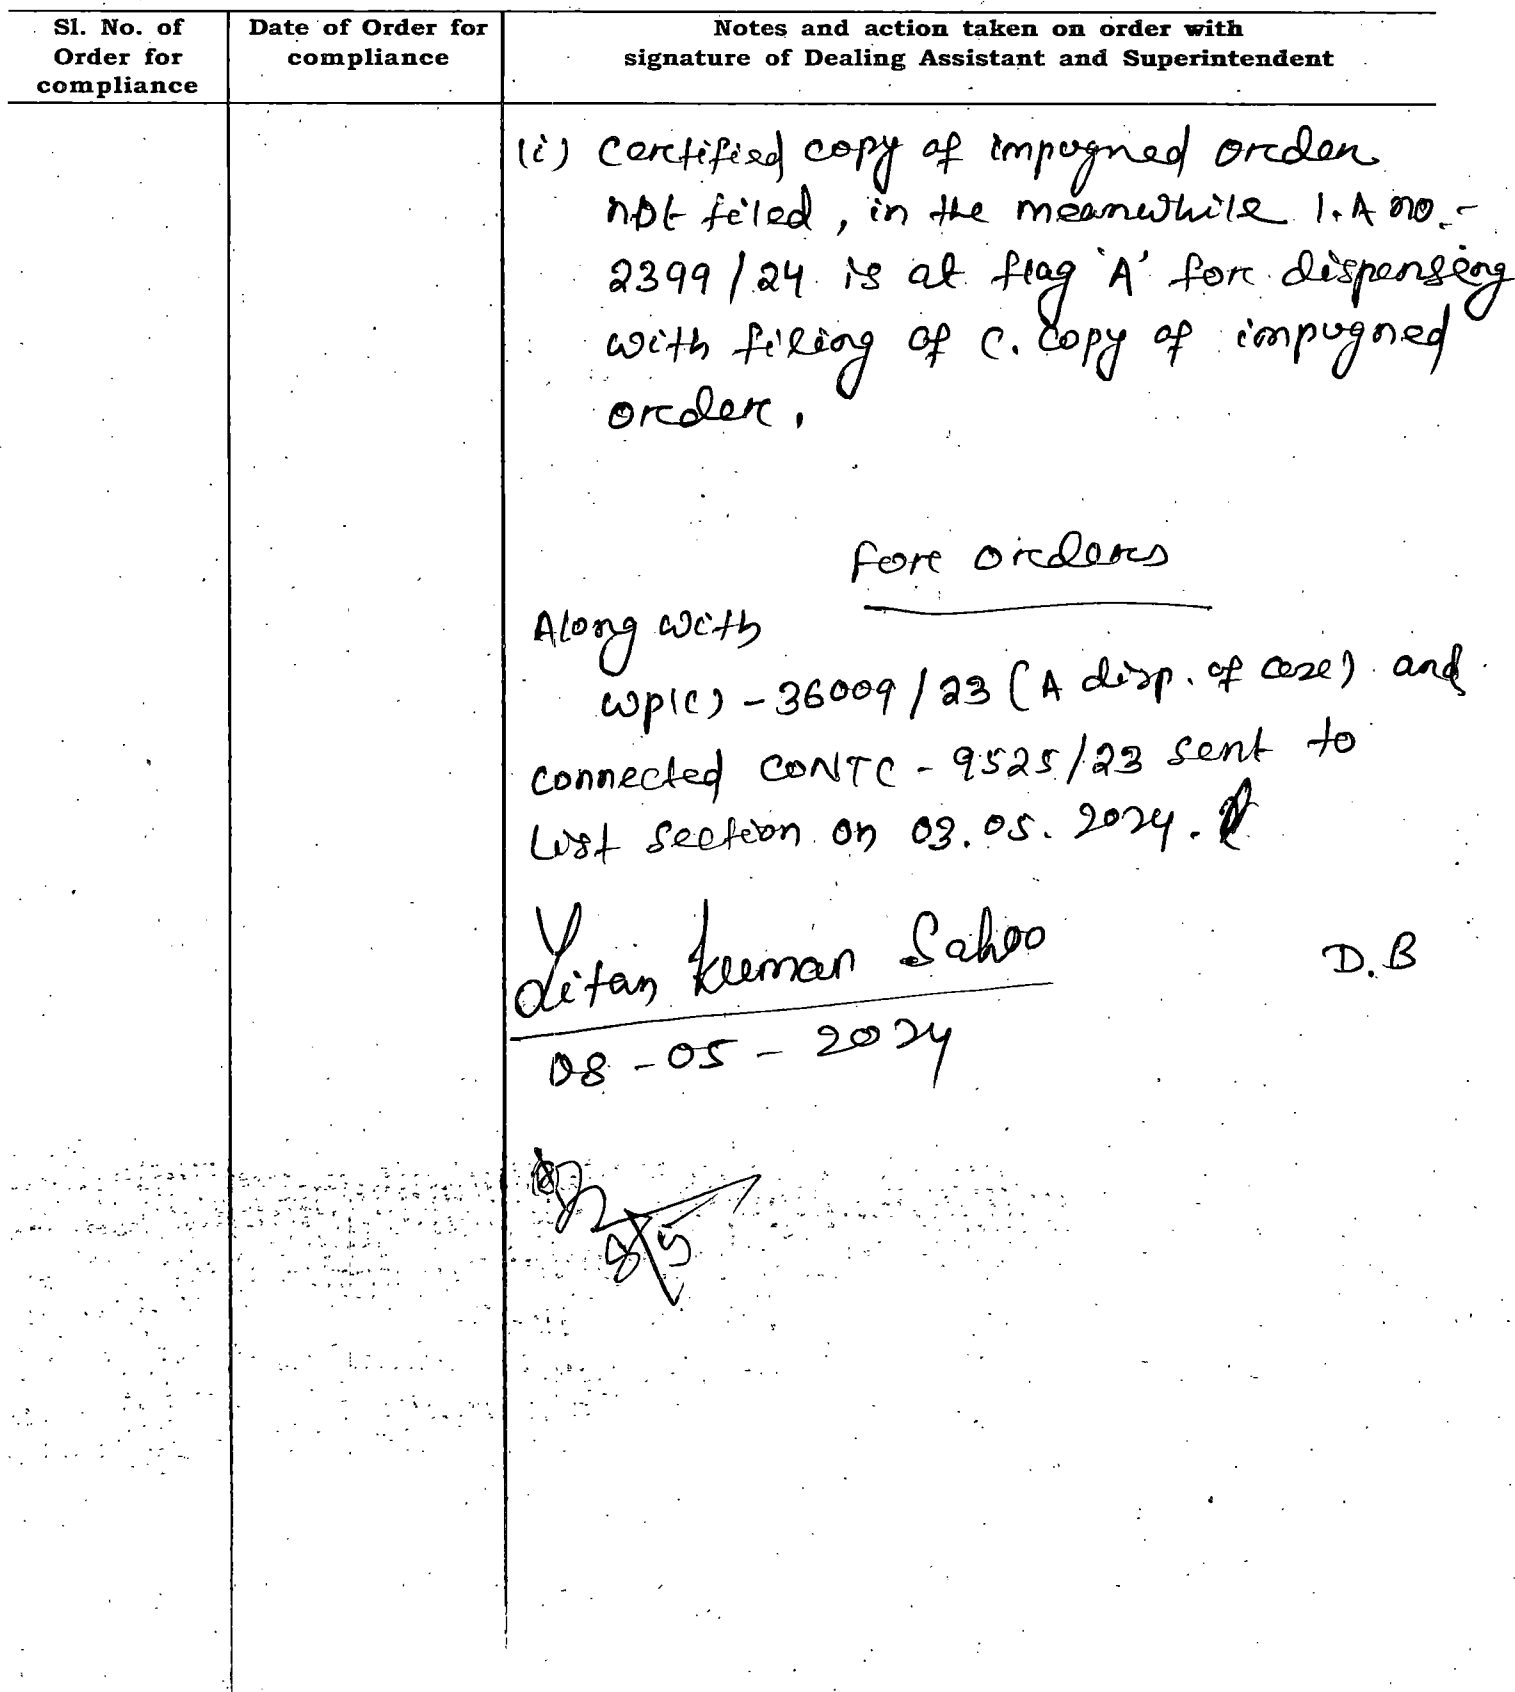 Sl. No. of Order for compliance
Date of Order for compliance
Notes and action taken on order with
signature of Dealing Assistant and Superintendent
(i) Certified copy of impugned order
not filed, in the meanwhile I.A no.-
2399/24 is at flag 'A' for dispensing
with filing of C. Copy of impugned
order.
For orders
Along with
WP(C) - 36009/23 (A disp. of case) and
connected CONTC - 9525/23 sent to
List Section on 03.05.2024.
Litan Kumar Sahoo
D.B
08-05-2024
8/5